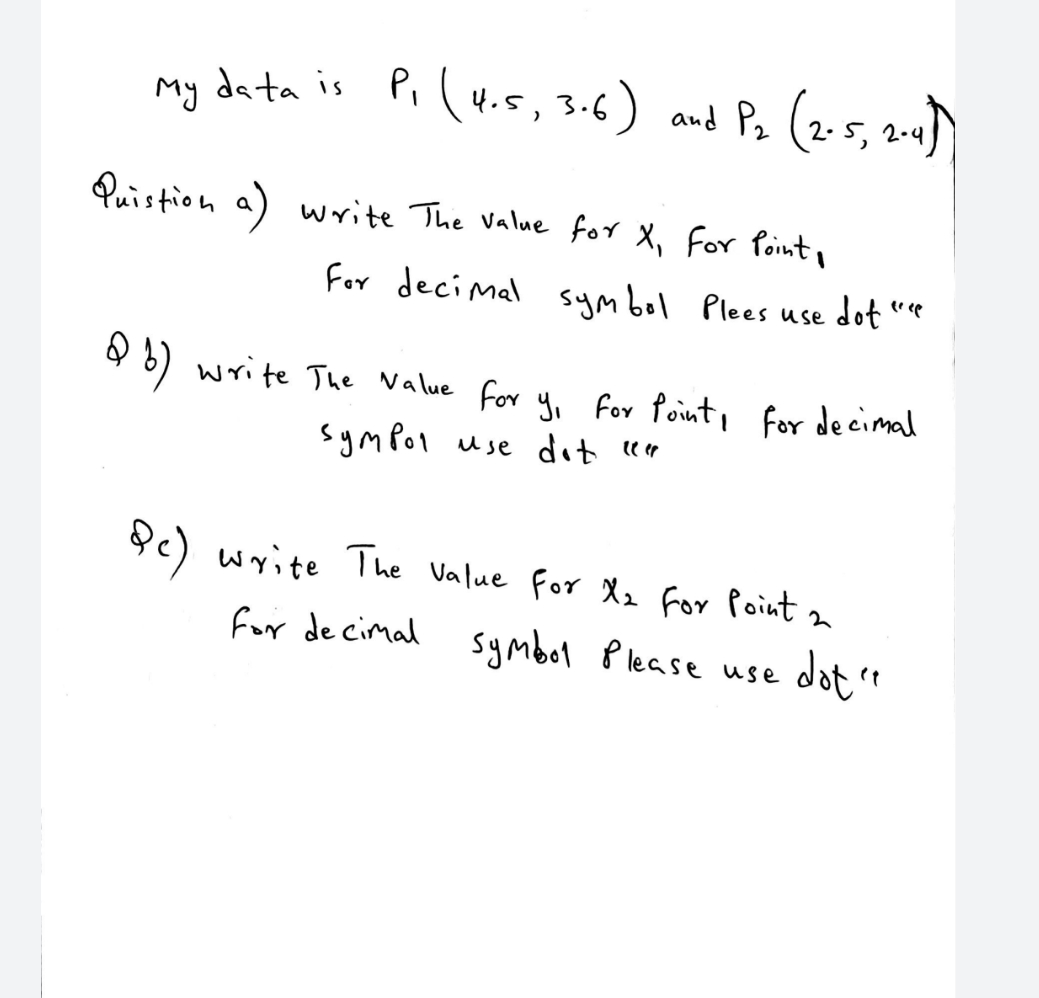 My data is P₁ (4.5, 3.6) and P₂ (2.5, 2.4)
Quistion a) write The value for X₁ For Point₁
For decimal symbol Plees use dot “”
Q b) write The Value for y₁ For Point₁ for decimal
sympol use dot “”
Qc) write The Value For X₂ For Point 2
For decimal symbol Please use dot “